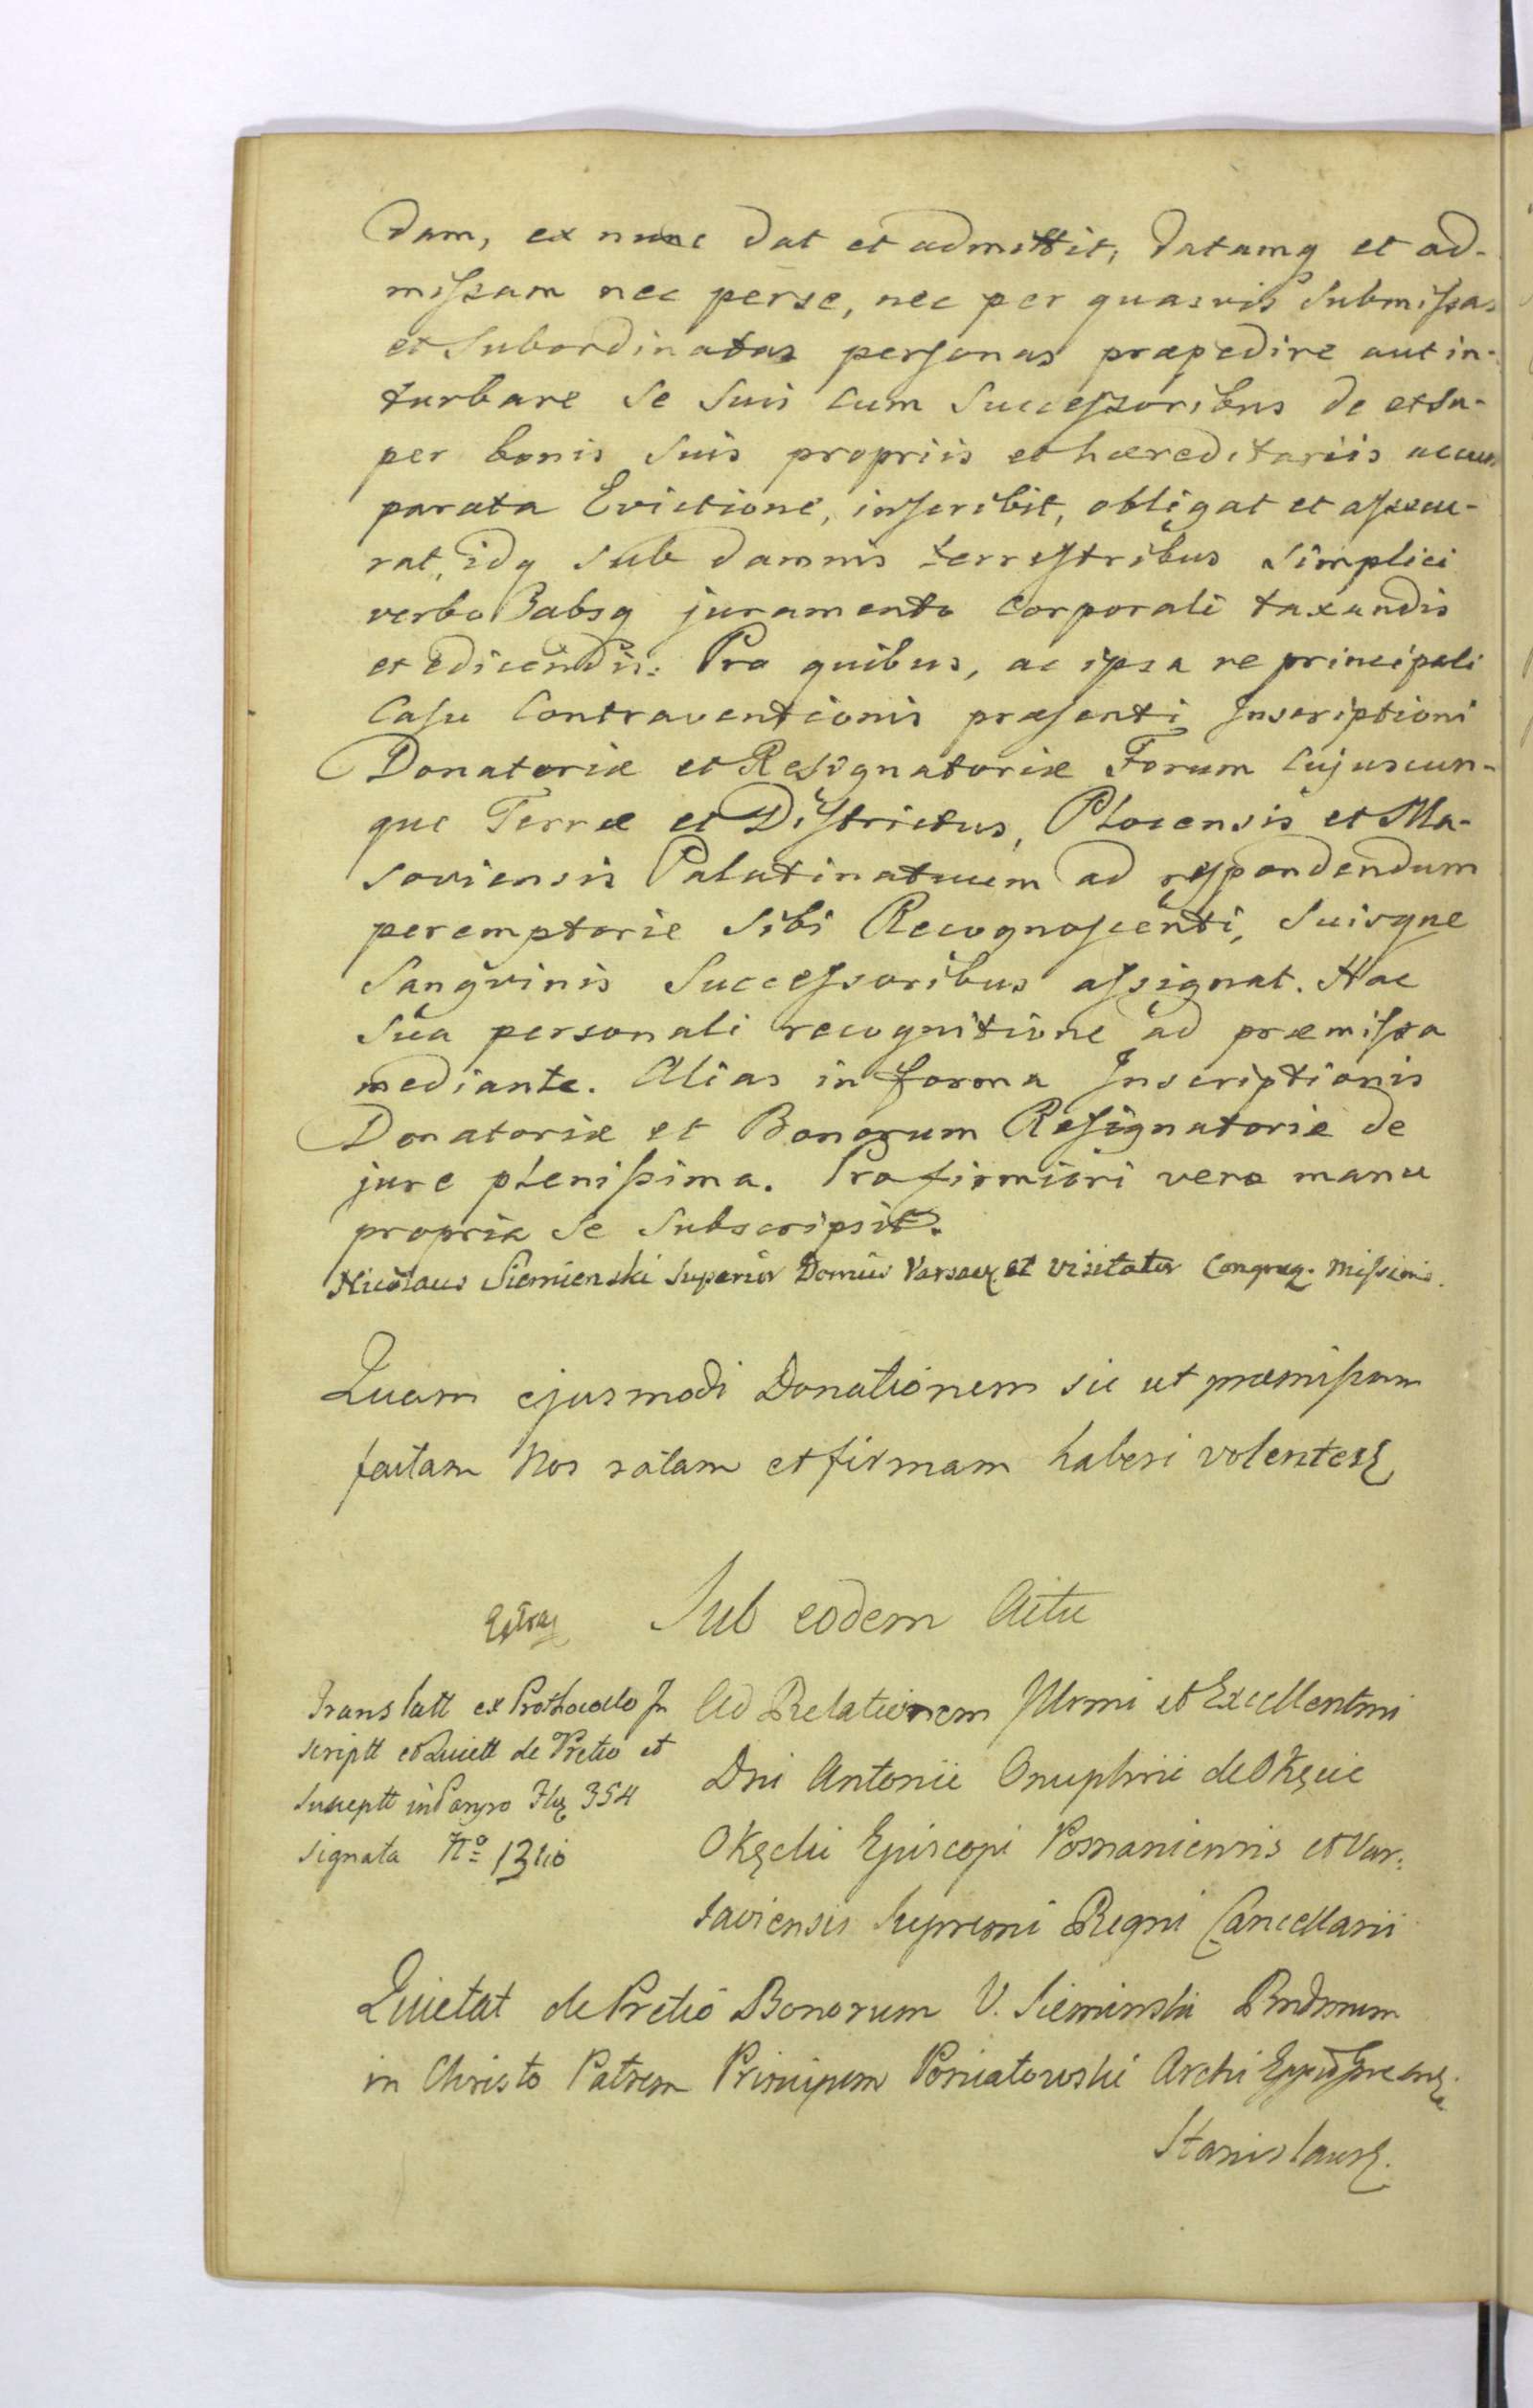 dam, ex nunc dat et admittit, datamq et ad-
missam nec per se, nec per quasvis submissas
et subordinatas personas præpedire aut in-
turbare se suis cum successoribus de et su-
per bonis suis propriis et hæreditariis accum
parata Evictione, inscribit, obligat et assecu-
rat, idq sub damnis terrestribus simplici
verbo absq juramento corporali taxandis
et edicendis: Pro quibus, ac ipsa re principali
Casu Contraventionis præsenti Inscriptioni
Donatoriæ et Resignatoriæ Forum cujuscun-
que Terræ et Districtus, Plocensis et Ma-
soviensis Palatinatuum ad respondendum
peremptorie sibi Recognoscenti, suisque
Sangvinis Successoribus assignat. Hac
sua personali recognitione ad præmissa
mediante. Alias in forma Inscriptionis
Donatoriæ et Bonorum Resignatoriæ de
jure plenissima. Pro firmiori vero manu
propria se subscripsit.
Nicolaus Siemienski Superior Domûs Varsav et Visitator Congreg. Missionis.
Quam ejusmodi Donationem sic ut præmissum
factam Nos ratam et firmam haberi volentes
Sub eodem Actu
Translatt ex Prothocollo In
scriptt et Quiett de Pretio et
Susceptt in 354
signata No 13tio
Ad Relationem Illrmi et Excellentmi
Dni Antonii Onuphrii de Okęcie
Okęcki Episcopi Posnaniensis et Var:
saviensis Supremi Regni Cancellarii
Quietat de Pretio Bonorum V. Sieminski Rndmum
in Christo Patrem Principem Poniatowski Archi
Stanislaus